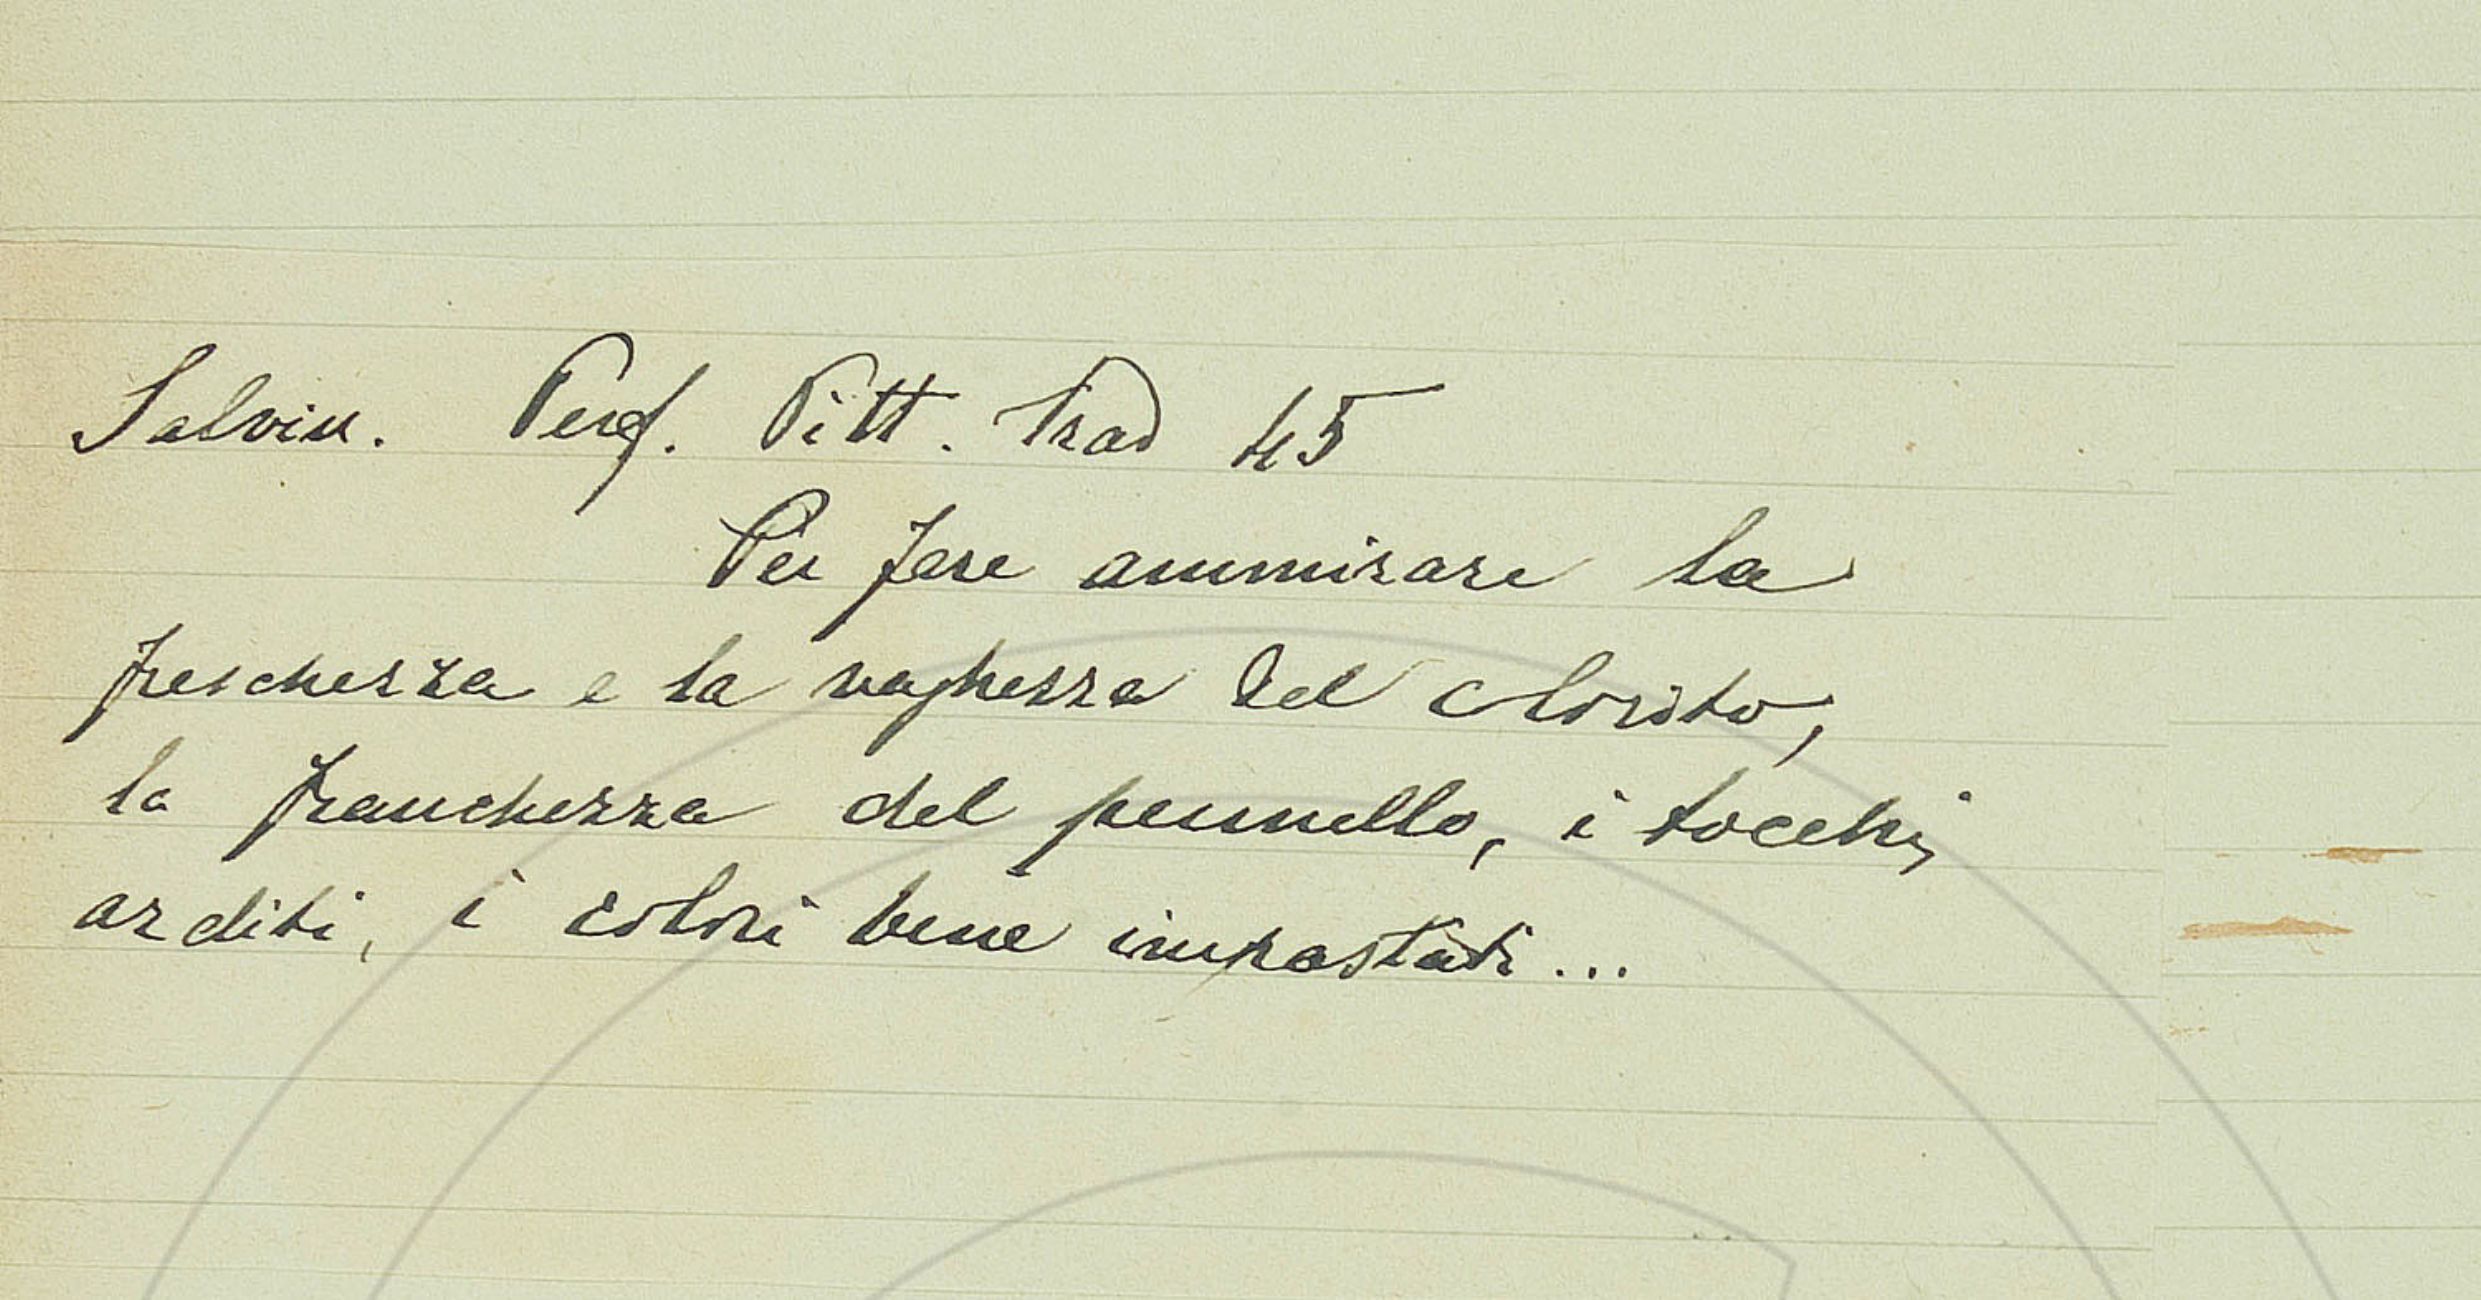 Salvin. Perf. Pitt. Trad 45
Per fare ammirare la
freschezza e la vaghezza del colorito,
la franchezza del pennello, i tocchi,
arditi, i colori bene impastati...